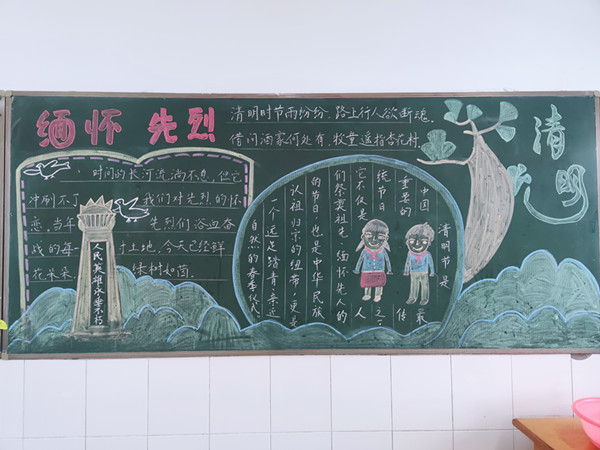 缅怀 先烈
清明时节雨纷纷,路上行人欲断魂。
借问酒家何处有,牧童遥指杏花村。
清明
时间的长河流淌不息,但它
冲刷不了我们对先烈的怀
恋,当年先烈们浴血奋
战的每一寸土地,今天已经鲜
花朵朵绿树如茵。
人民英雄永垂不朽
清明节是
中国最
重要的传
统节日之一
它不仅是人
们祭奠祖先、缅怀先人的
的节日,也是中华民族
认祖归宗的纽带,更是
一个远足踏青、亲近
自然的春季仪式